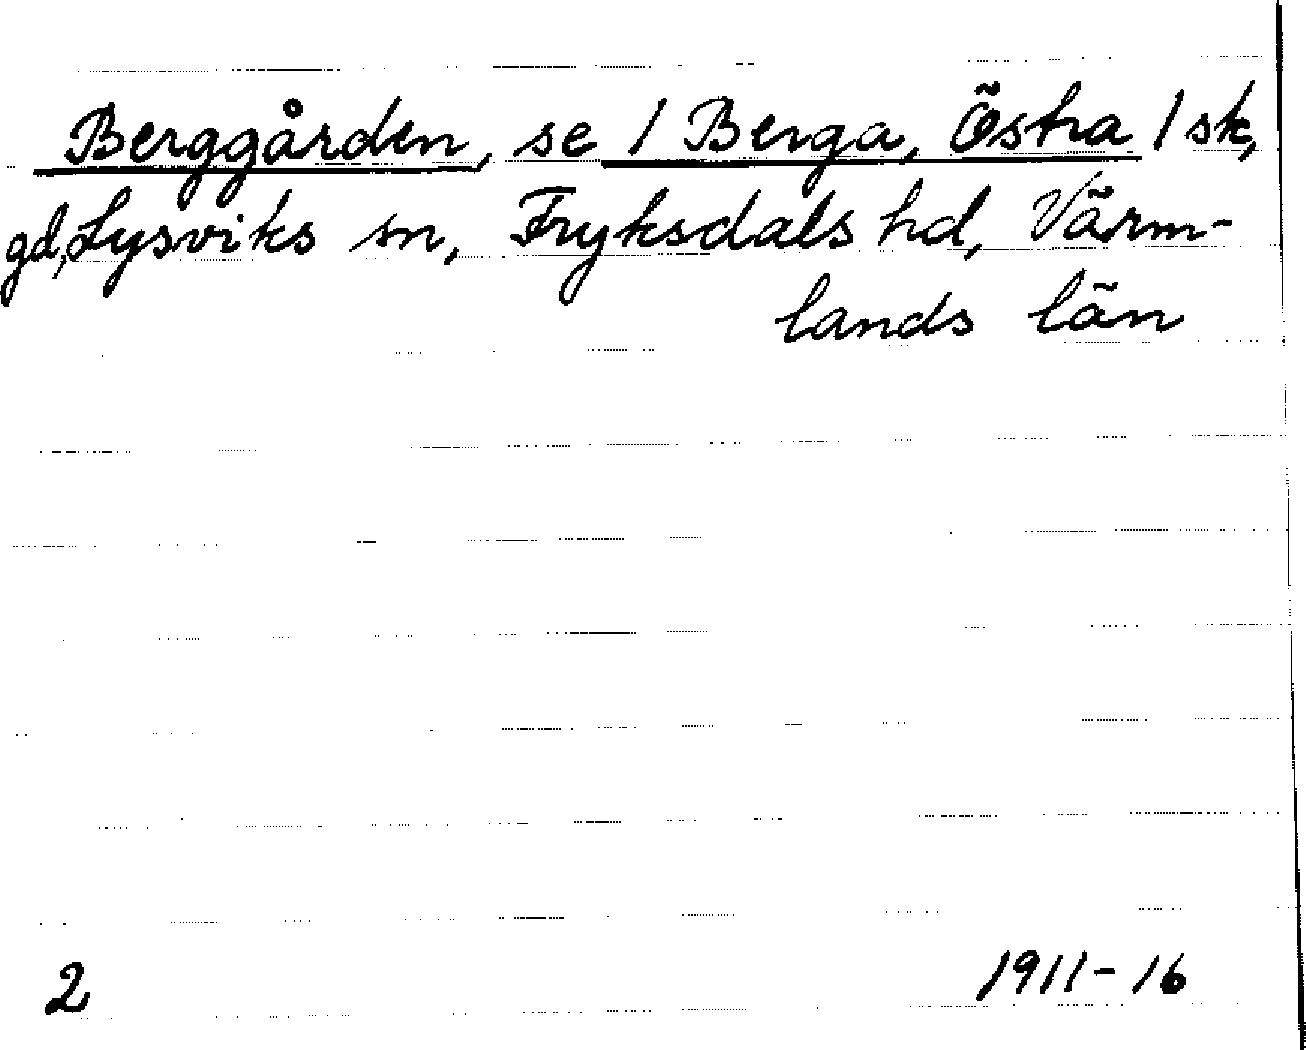 Berggården, se / Berga, Östra / sk,
gd, Lysviks sn, Fryksdals hd, Värm-
lands län
2 1911-16